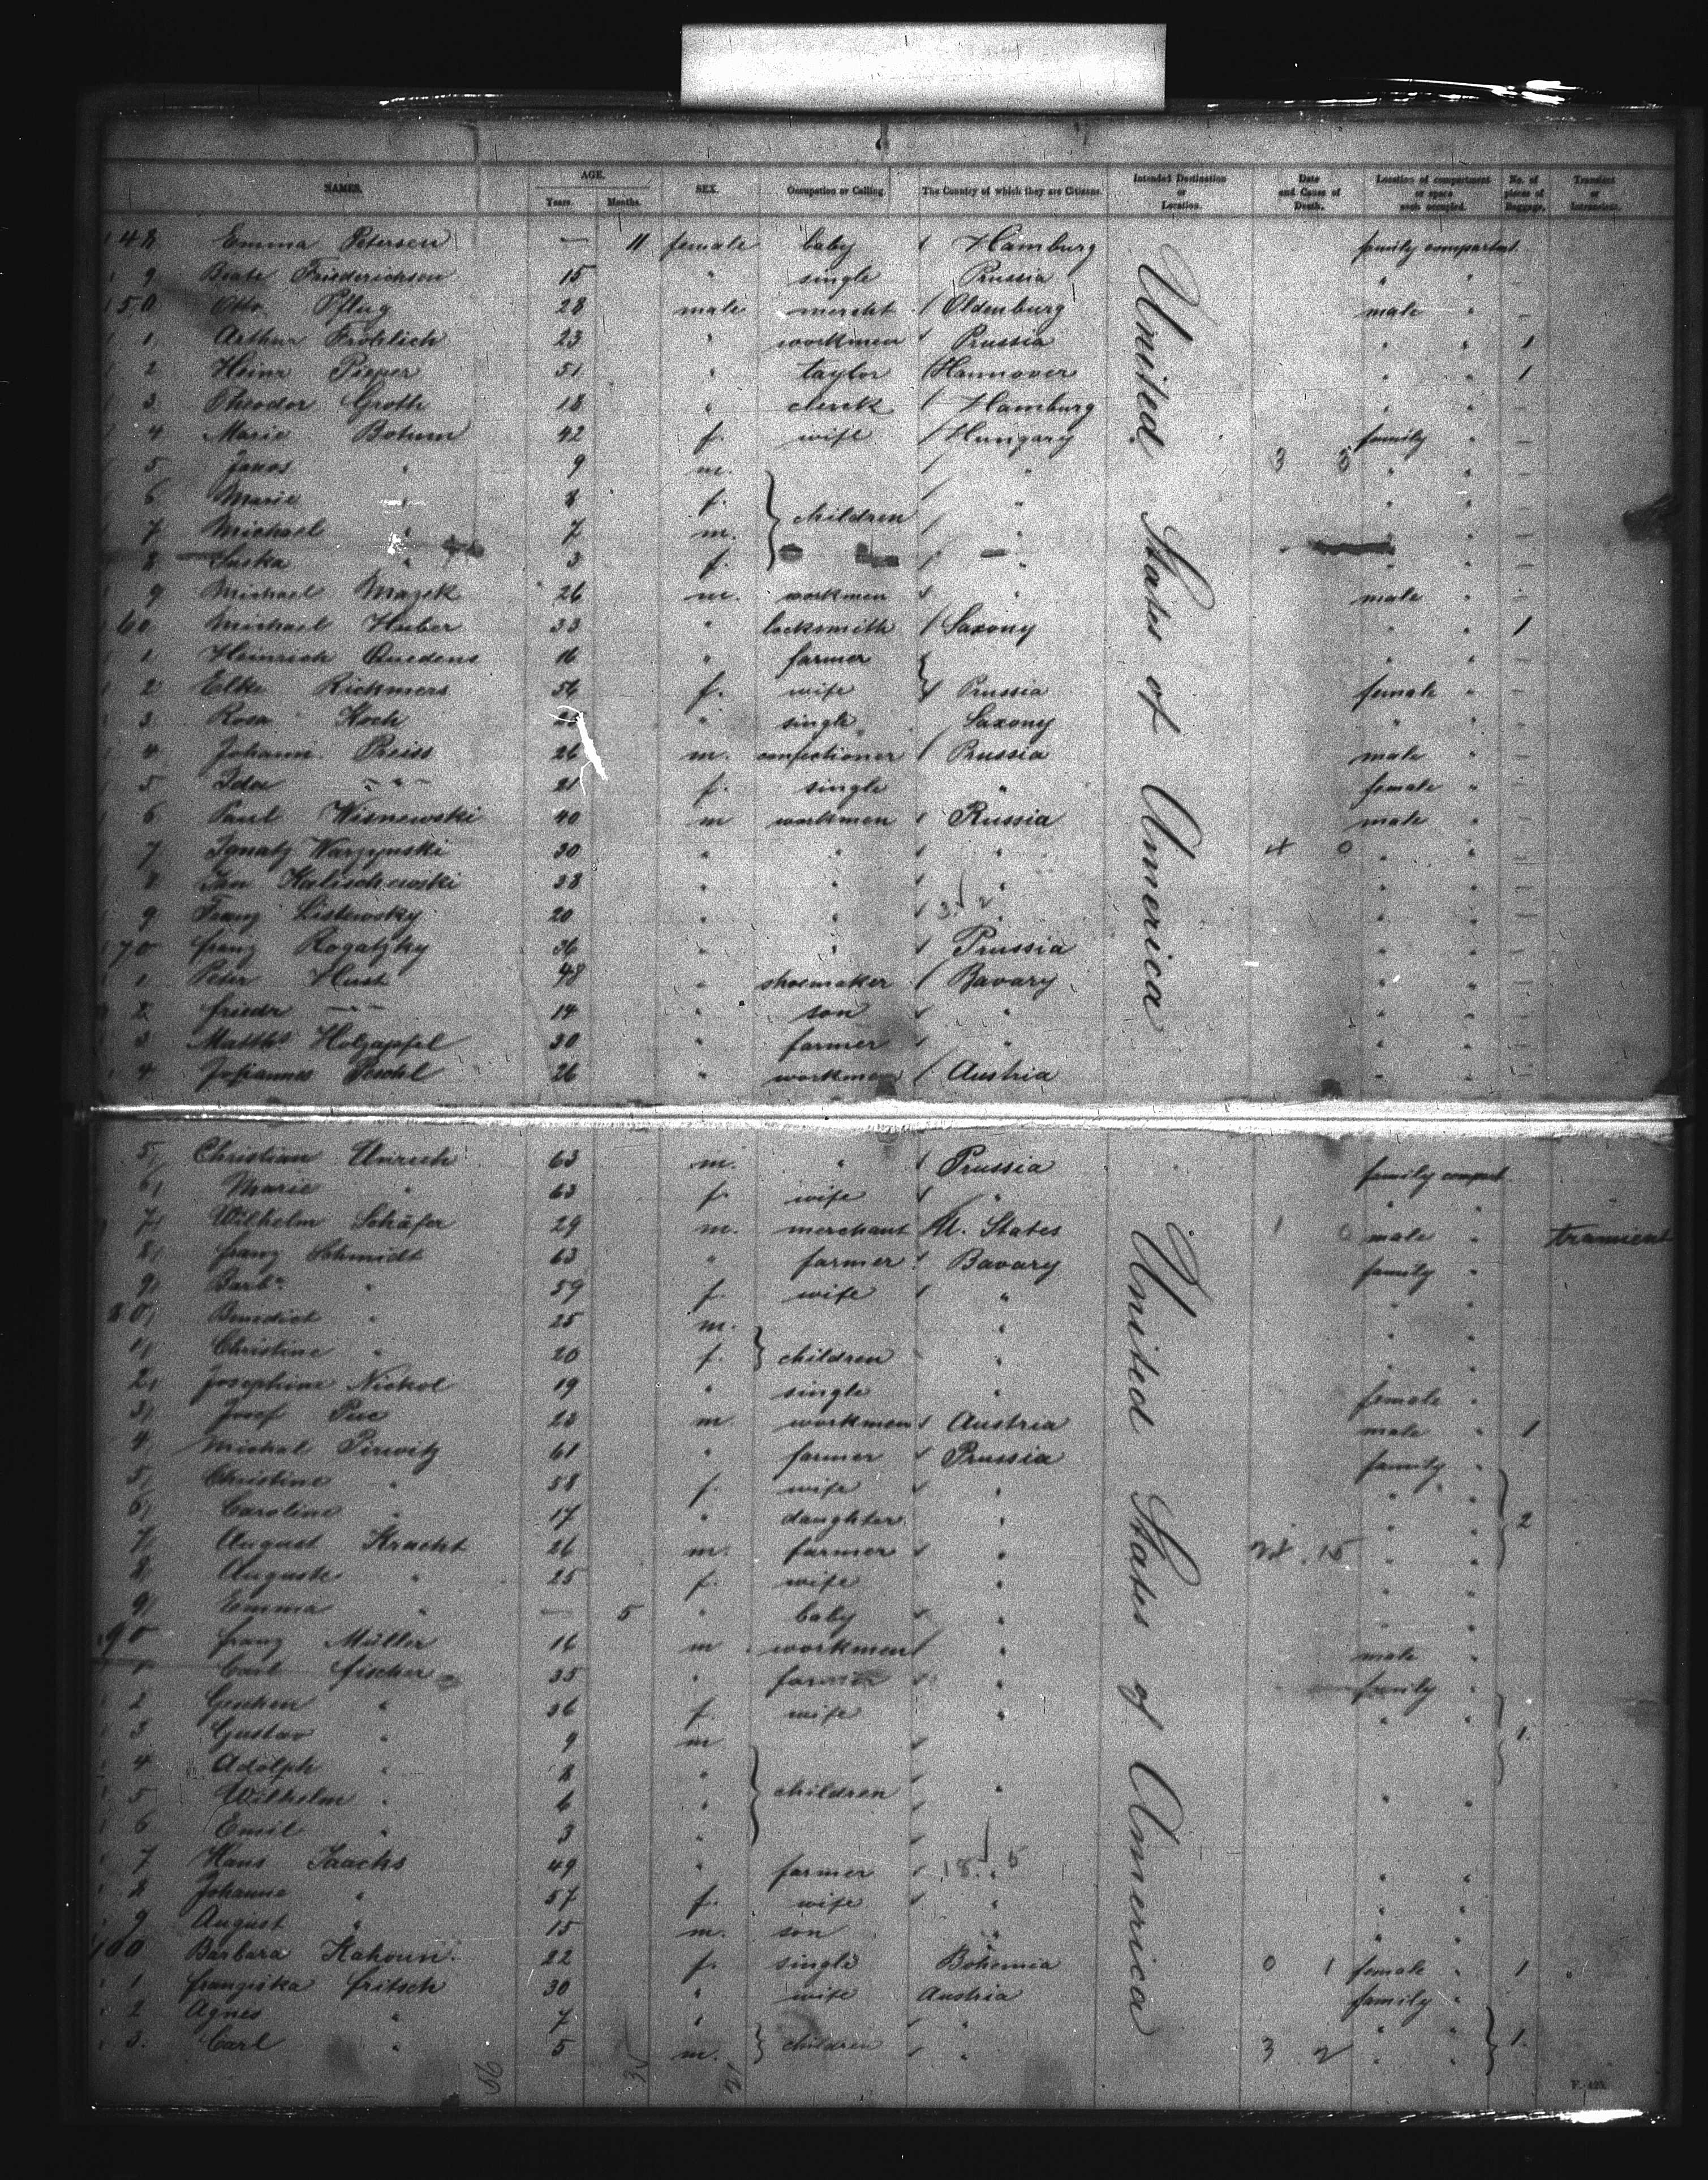 NAMES. AGE. Years. Months. SEX. Occupation or Calling. The Country of which they are Citizens. Intended Destination or Location. Date and Cause of Death. Location of compartment or space each occupied. No. of pieces of Baggage. Transient or Intransient.
148 Emma Petersen — 11 female baby Hamburg family compartmt.
9 Beate Friederichsen 15 " single Prussia " " –
150 Otto Pflug 28 male mercht Oldenburg male " –
1 Arthur Fröhlich 23 " workmen Prussia " " 1
2 Heinr Pieper 51 " taylor Hannover " " 1
3 Theodor Groth 18 " clerck Hamburg " " –
4 Marie Botum 42 f. wife Hungary family " –
5 Janos " 9 m. " 3 3 " " –
6 Marie " 8 f. " " " –
7 Michael " 7 m. children " " " –
8 Suska " 3 f. " " " –
9 Michael Mazek 26 m. workmen " male " –
160 Michael Huber 33 " locksmith Saxony " " 1
1 Heinrich Quedens 16 " farmer " " –
2 Elke Richmers 56 f. wife Prussia female " –
3 Rosa Koch " single Saxony " " –
4 Johann Preiss 26 m. confectioner Prussia male " –
5 Ida " 21 f. single " female " –
6 Paul Wisnewski 40 m workmen Russia male " –
7 Ignatz Warzynski 30 " " " 4 0 " " –
8 Jan Kalischewski 38 " " " " " –
9 Franz Listewsky 20 " " 3. 2 " " " –
170 Franz Rogatzky 36 " " Prussia " " –
1 Peter Hust 48 " shoemaker Bavary " " –
2 Friedr " 14 " son " " " –
3 Matths Holzapfel 30 " farmer " " " –
4 Johannes Poschl 26 " workmen Austria " " –
United States of America
5 Christian Unrech 63 m. " Prussia family compart.
6 Marie " 63 f. wife " " "
7 Wilhelm Schäfer 29 m. merchant U. States 1 0 male " transient
8 Franz Schmidt 63 " farmer Bavary family "
9 Barba " 59 f. wife " " "
80 Benedict " 25 m. " " "
1 Christine " 20 f. children " " "
2 Josephine Nickol 19 " single " female "
3 Josef Puc 23 m workmen Austria male " 1
4 Michael Pirwitz 61 " farmer Prussia family "
5 Christine " 58 f. wife " " "
6 Caroline " 17 " daughter " " " 2
7 August Kracht 26 m. farmer " 15 " "
8 Auguste " 25 f. wife " " "
9 Emma " — 5 " baby " " "
190 Franz Müller 16 m workmen " male "
1 Carl Fischer 35 " farmer " family "
2 Geschen " 36 f. wife " " "
3 Gustav " 9 m 1.
4 Adolph " 8 "
5 Wilhelm " 6 " children " " "
6 Emil " 3 "
7 Hans Jaachs 49 " farmer 18. 5 " " "
8 Johanna " 57 f. wife " " "
9 August " 15 m. son " " "
100 Barbara Kahoun. 22 f. single Bohemia 0 1 female " 1
1 Franziska Fritsch 30 " wife Austria family "
2 Agnes " 7 " " " "
3. Carl " 5 m. children " 3 2 " " 1.
United States of America